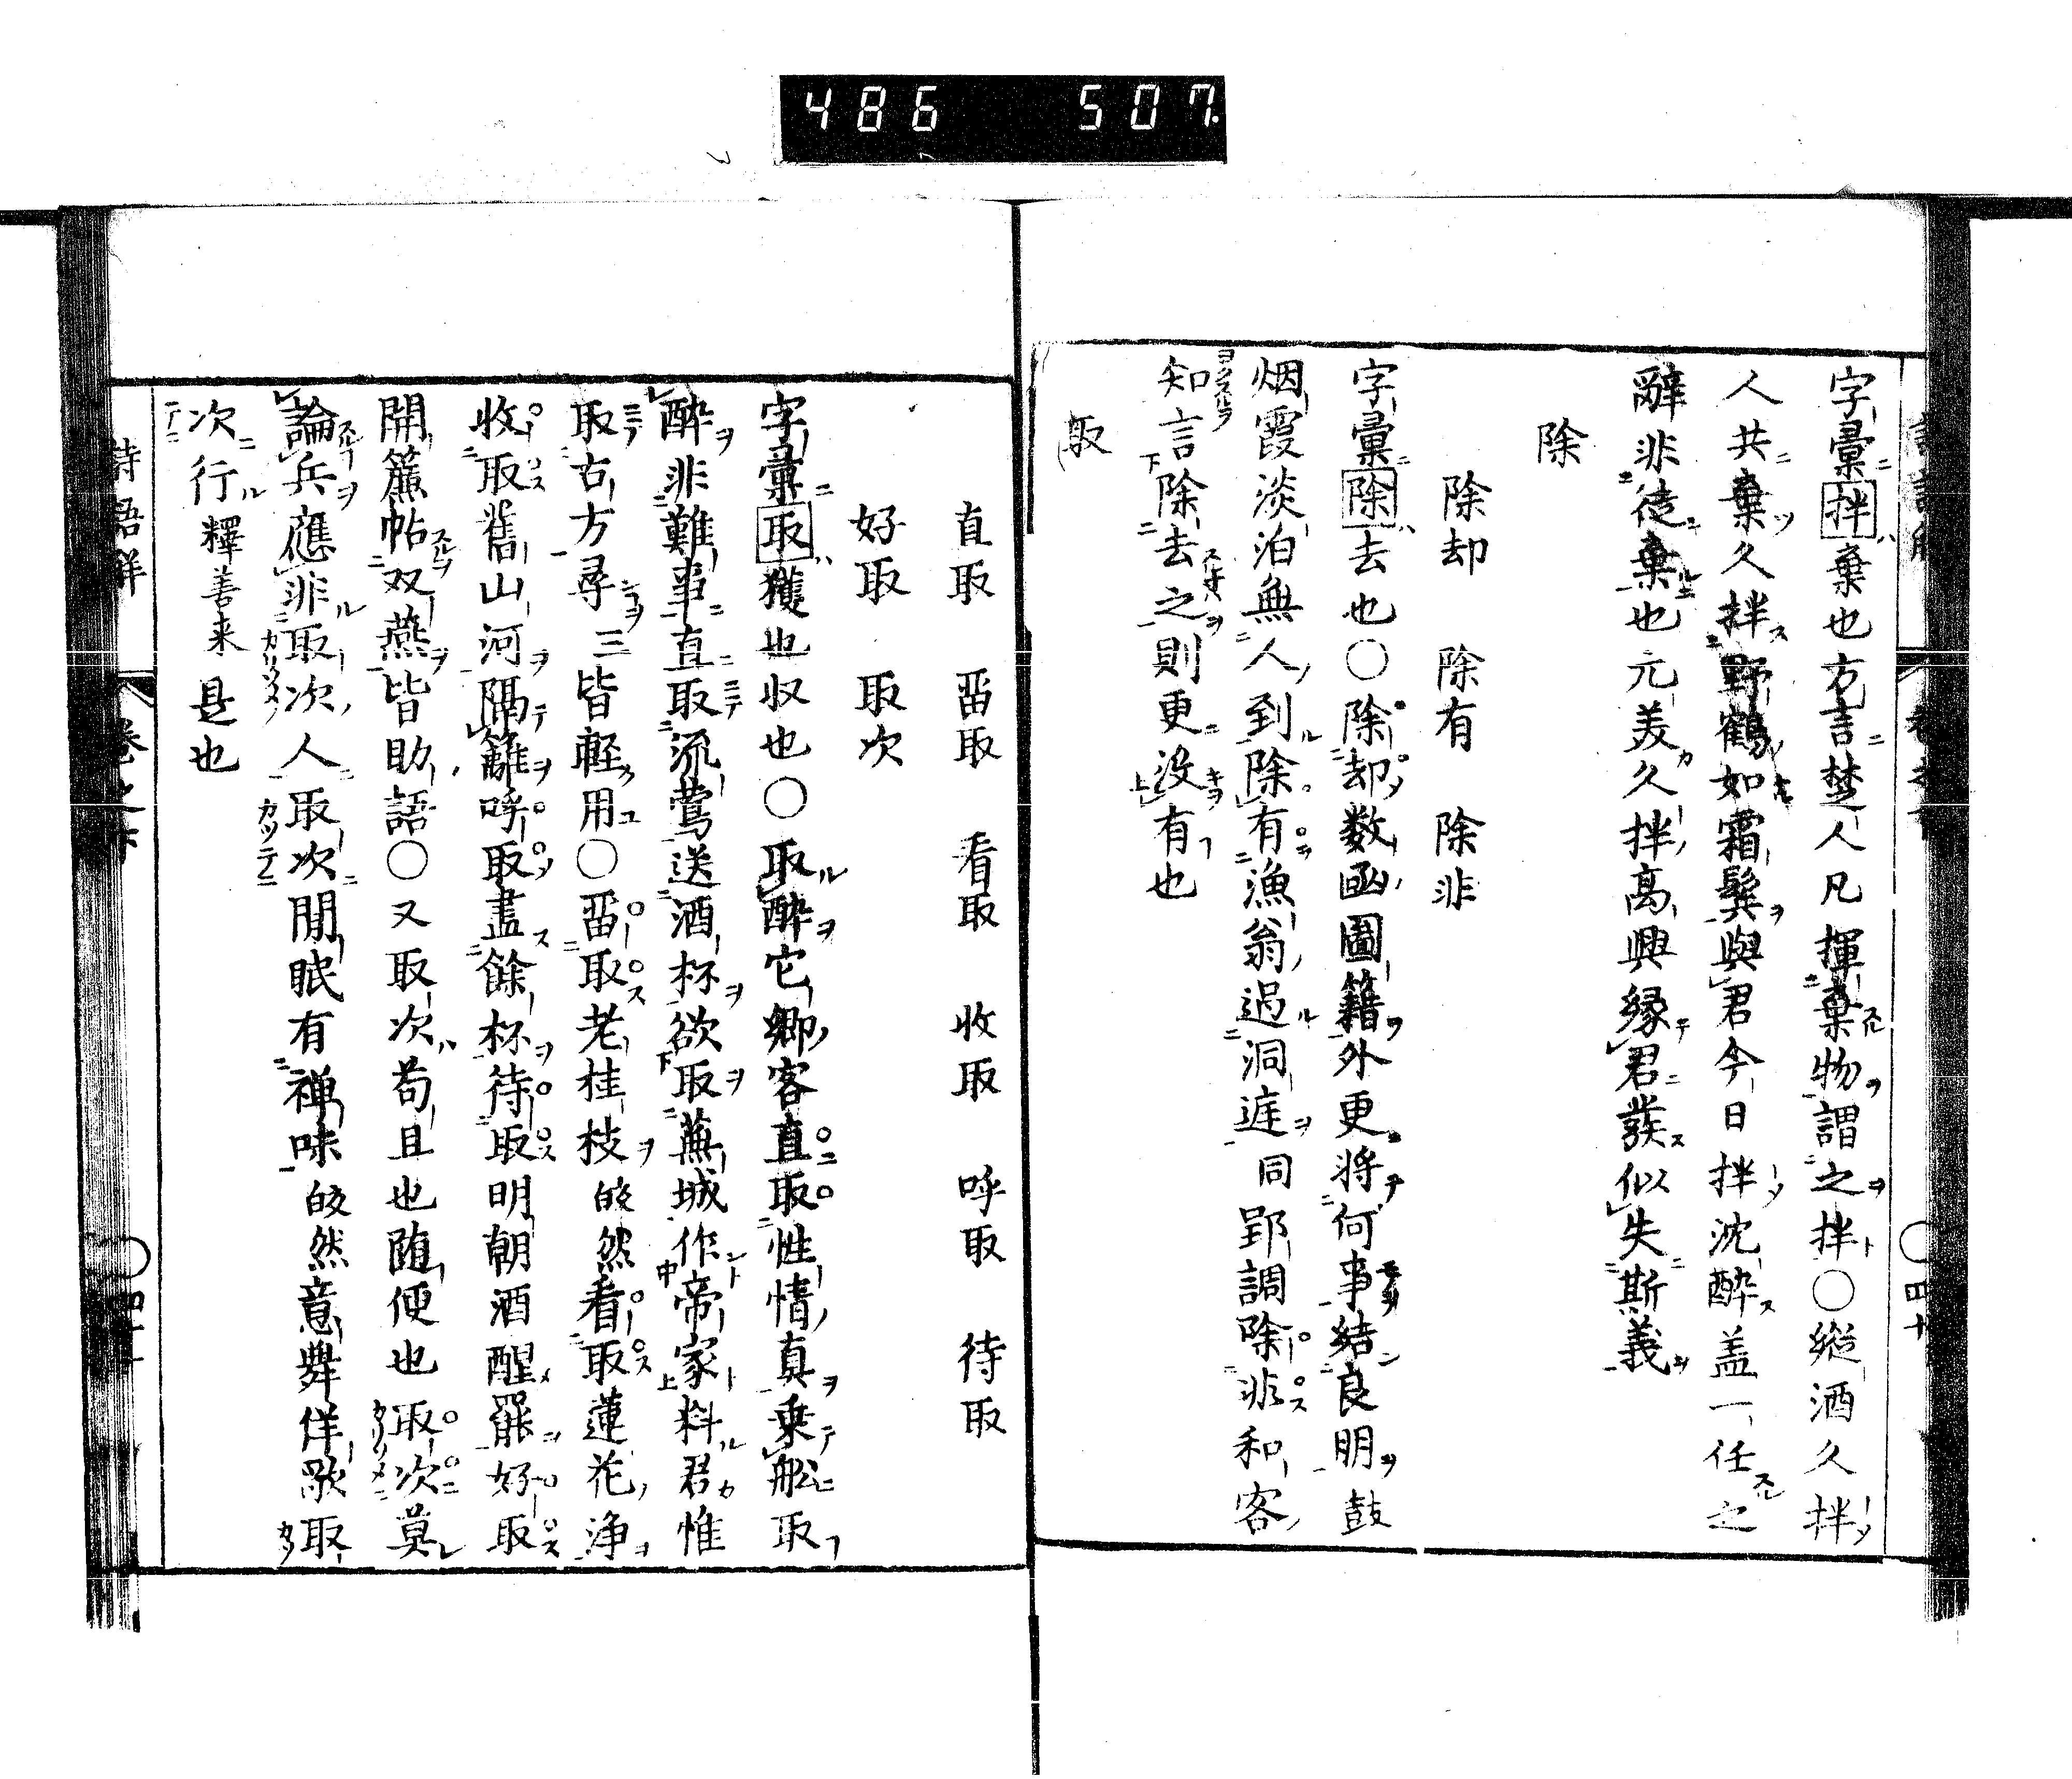 486 507.
字彙拌棄也方言楚人凡揮棄物謂之拌○縱酒久拌
人共棄久拌野鶴如霜鬂與君今日拌沈醉盖一任之
辭非徒棄也元美久拌髙興縁君發似失斯義
除
除却 除有 除非
字彙除去也○除却数函圖籍外更將何事結良朋鼓
烟霞淡泊無人到除有漁翁過洞庭同郢調除非和客
知言除去之則更没有也
取
直取 畱取 看取 收取 呼取 待取
好取 取次
字彙取獲也収也○取醉它鄉客直取性情真乗舩取
醉非難事直取流鶯送酒杯欲取蕪城作帝家料君惟
取古方尋三皆軽用○畱取老桂枝皎然看取蓮花浄
收取舊山河隔籬呼取盡餘杯待取明朝酒醒罷好取
開簾帖双燕皆助語○又取次苟且也随便也取次莫
論兵應非取次人取次閒眠有禅味皎然意舞佯歌取
次行釋善来是也
詩語解 卷之下 四十一